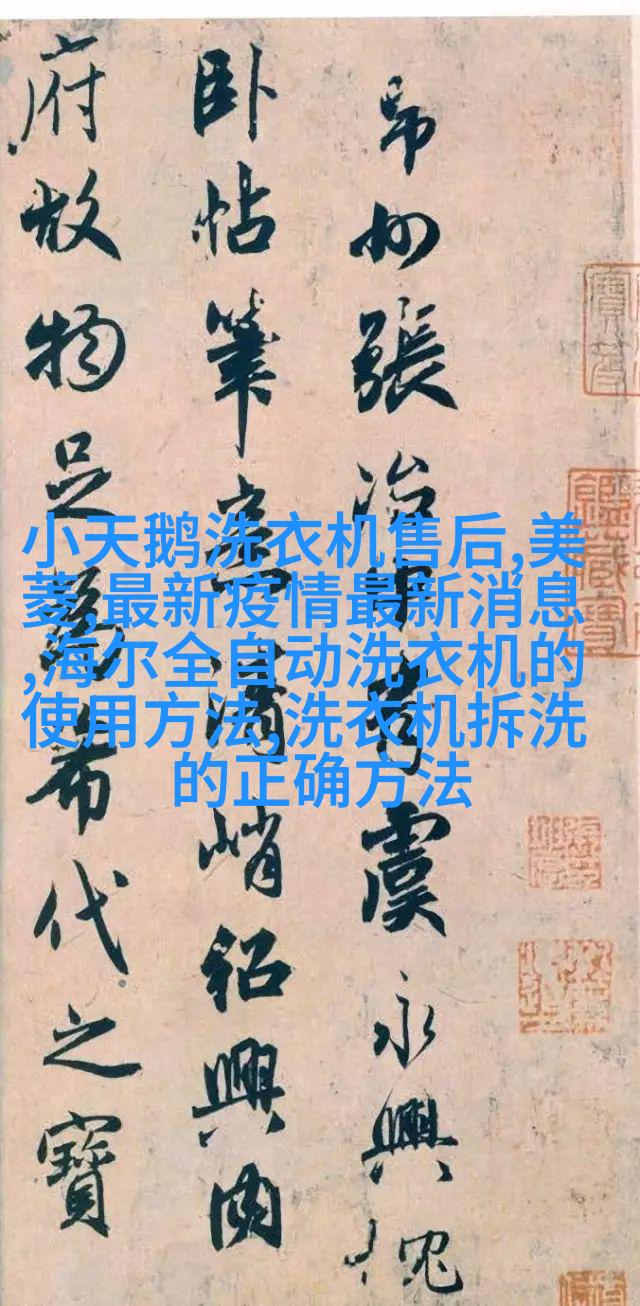 州張治中虞永興
卧帖筆意清峭紹興內
府故物足為希代之寶
小天鹅洗衣机售后,美
菱,最新疫情最新消息
,海尔全自动洗衣机的
使用方法,洗衣机拆洗
的正确方法